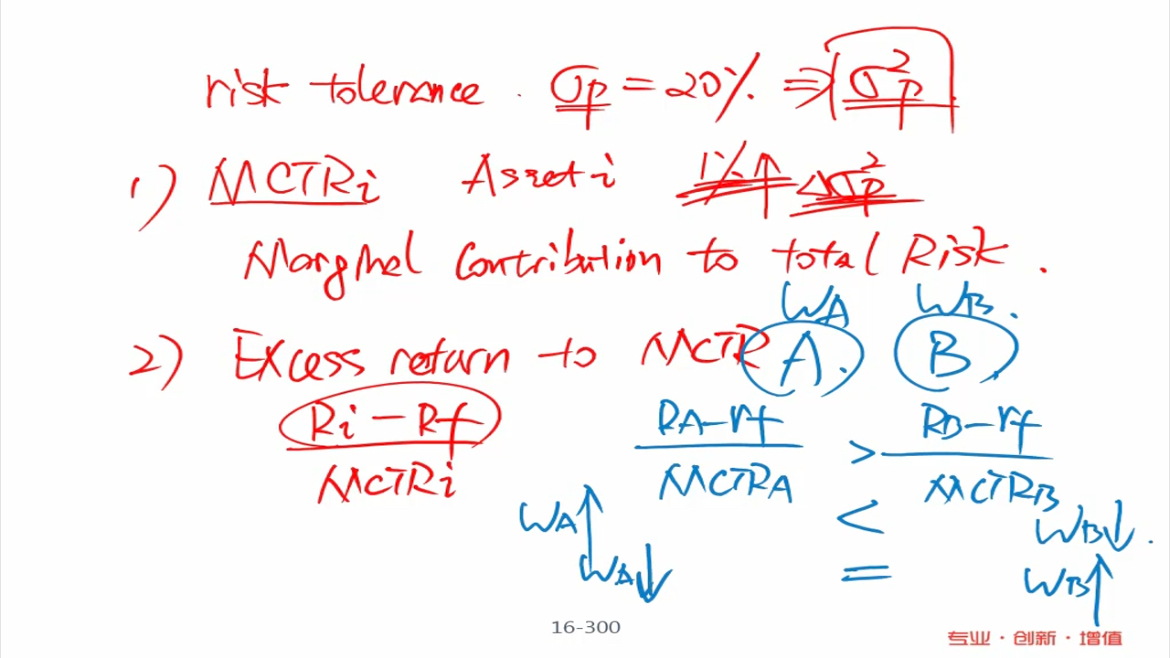 risk tolerance . σp = 20% ⇒ σ²p
1) MCTRi Asset i 1%↑ Δσ²p
Marginal Contribution to total Risk .
WA WB .
2) Excess return to MCTR A . B
Ri - Rf / MCTRi RA - rf / MCTRA > RB - rf / MCTRB
WA↑ < WB↓ .
WA↓ = WB↑
16-300
专业·创新·增值